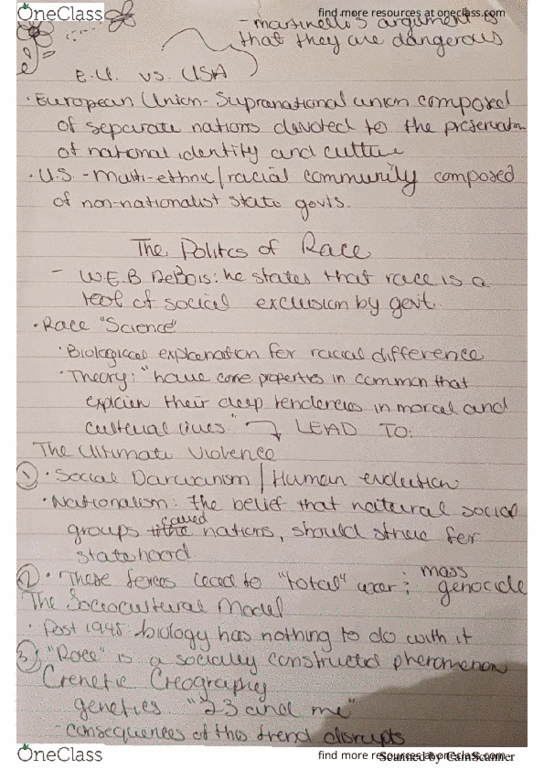 OneClass
find more resources at oneclass.com
- martinello's argument is
that they are dangerous
E.U. vs. USA
· European Union - Supranational union composed
of separate nations devoted to the preservation
of national identity and culture
· U.S. - multi-ethnic/racial community composed
of non-nationalist state govts.
The Politics of Race
- W.E.B DeBois: he states that race is a
tool of social exclusion by govt.
· Race "Science"
· Biological explanation for racial difference
· Theory: "have core properties in common that
explain their deep tendencies in moral and
cultural lives" → LEAD TO:
The Ultimate Violence
① · Social Darwanism / Human evolution
· Nationalism: the belief that natural social
groups called nations, should strive for
statehood
② · These forces lead to "total" war; mass genocide
The Sociocultural Model
· Post 1945: biology has nothing to do with it
③ · "Race" is a socially constructed phenomenon
Genetic Geography
genetics "23 and me"
- consequences of this trend disrupts
OneClass
find more resources at oneclass.com
Scanned by CamScanner